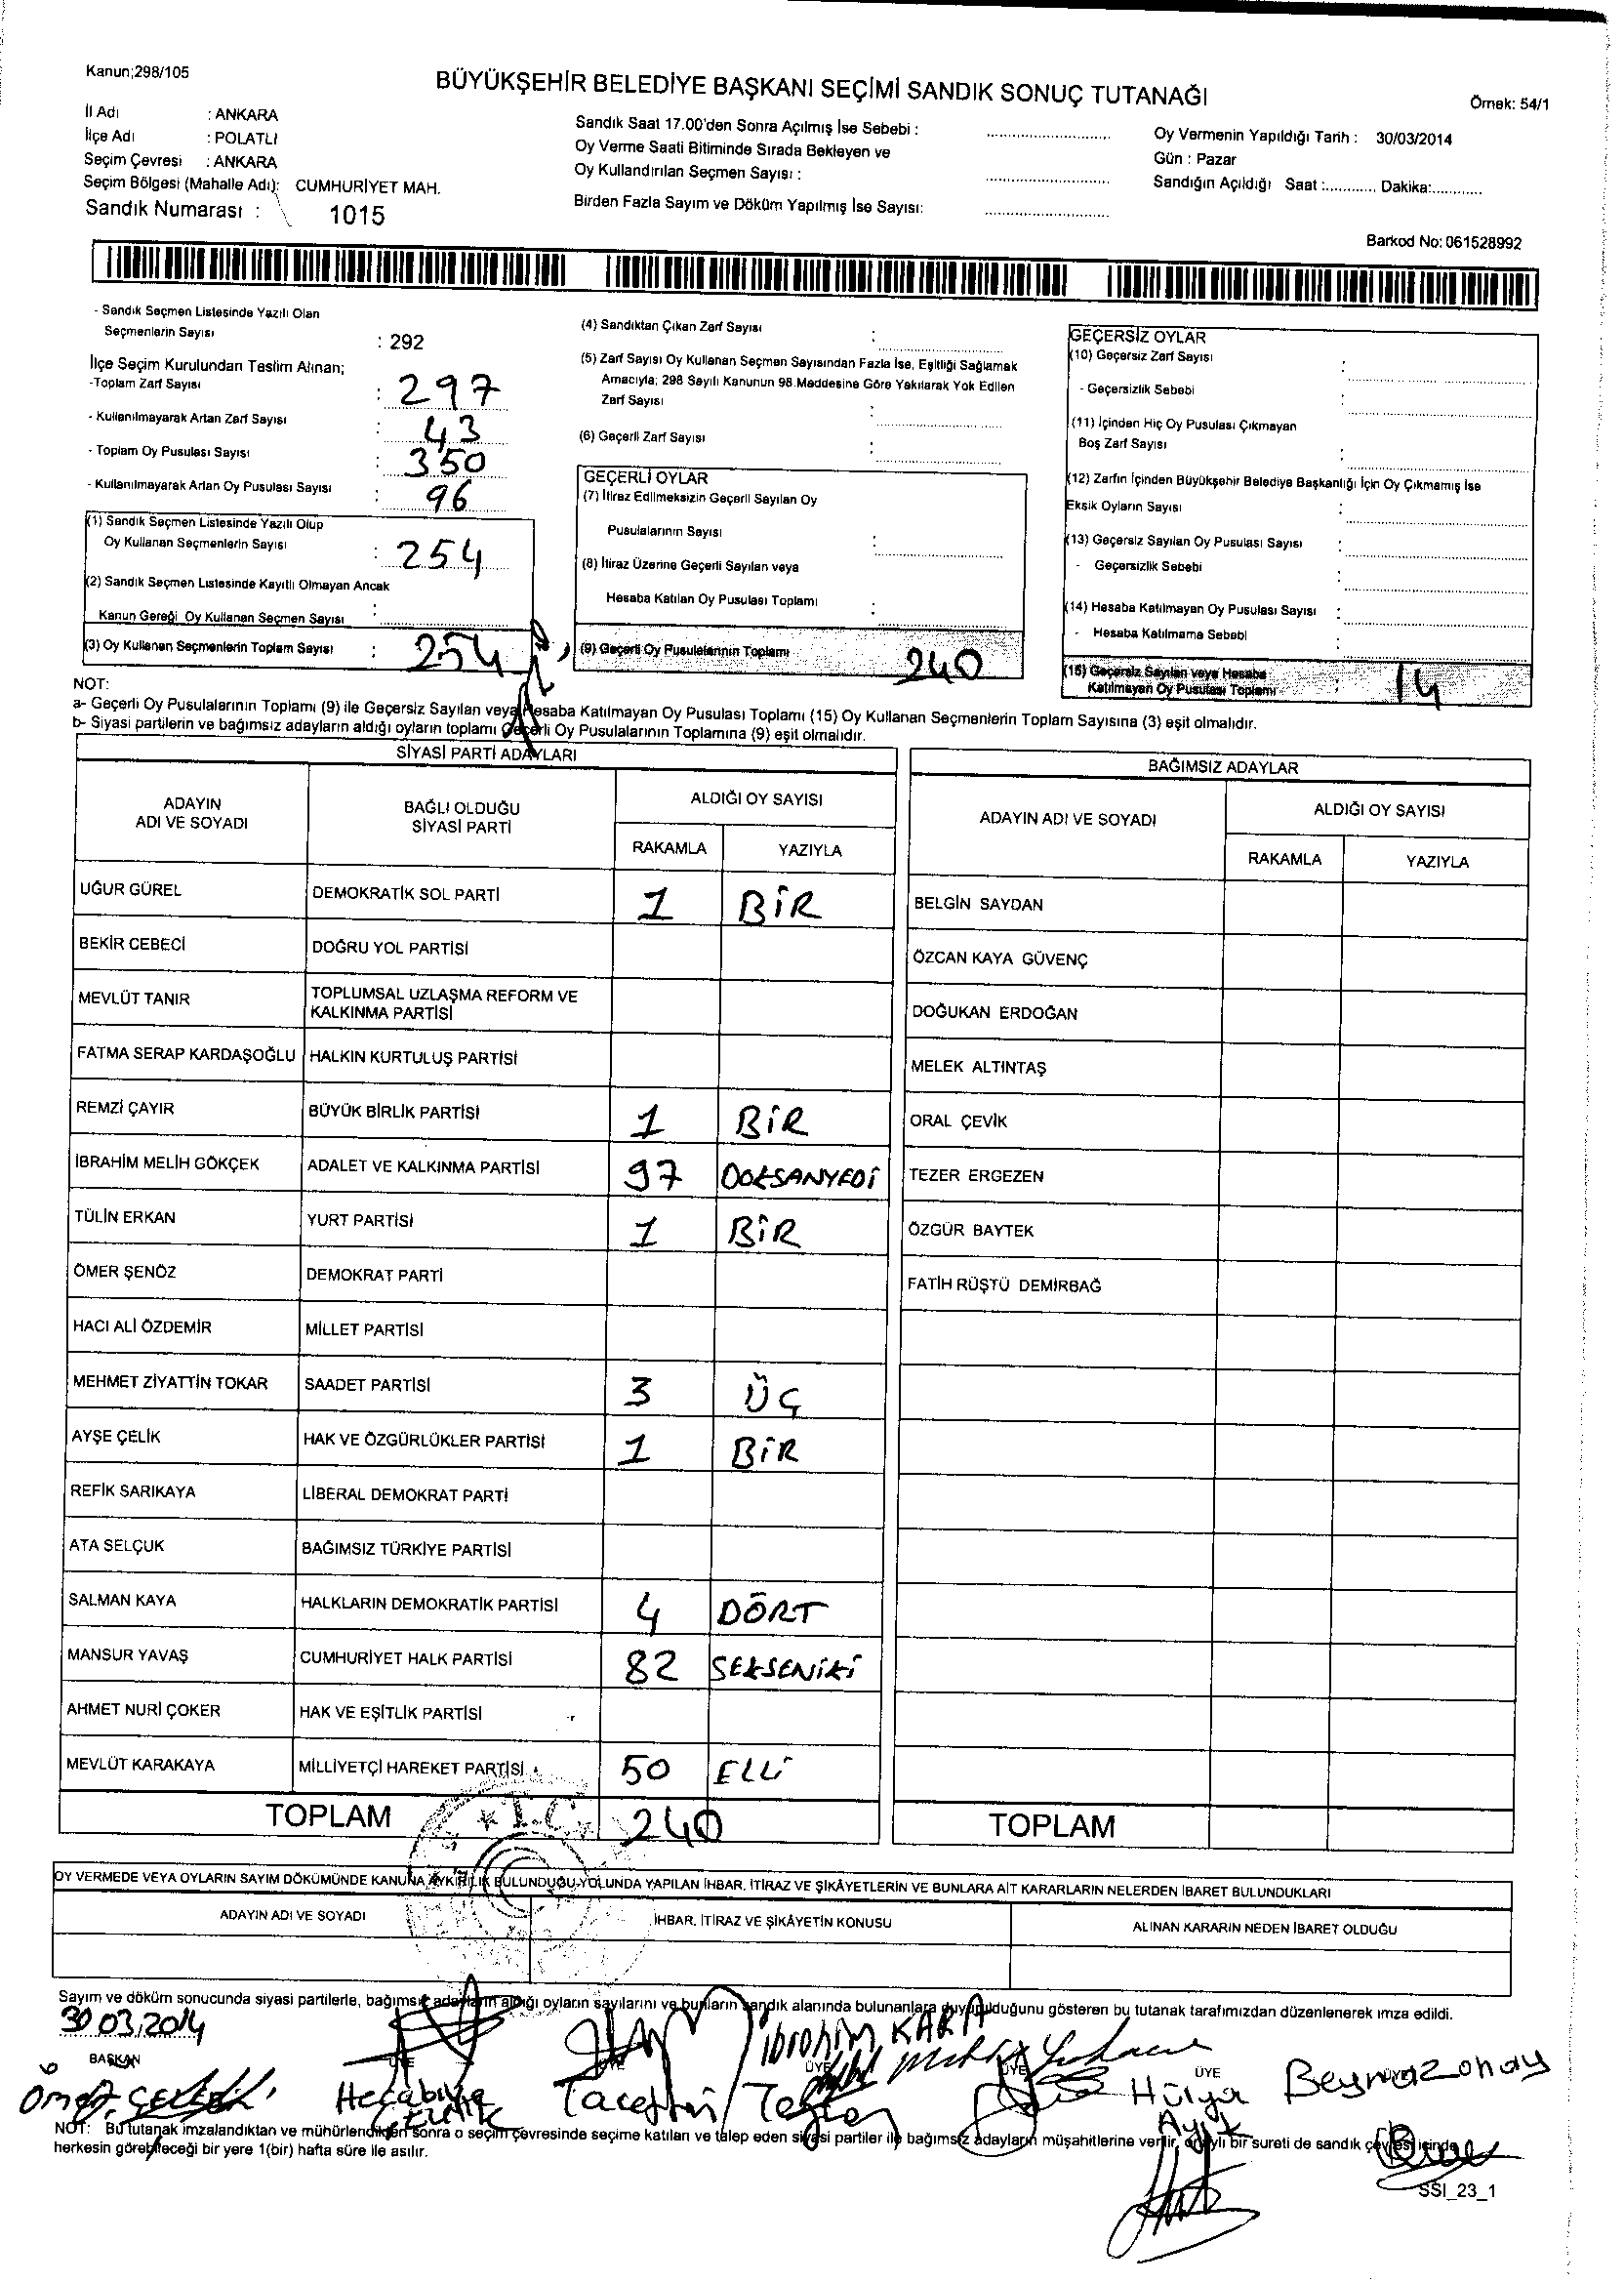 Kanun;298/105
BÜYÜKŞEHİR BELEDİYE BAŞKANI SEÇİMİ SANDIK SONUÇ TUTANAĞI
Örnek: 54/1
İl Adı : ANKARA
İlçe Adı : POLATLI
Seçim Çevresi : ANKARA
Seçim Bölgesi (Mahalle Adı): CUMHURİYET MAH.
Sandık Numarası : 1015
Sandık Saat 17.00'den Sonra Açılmış İse Sebebi :
Oy Verme Saati Bitiminde Sırada Bekleyen ve
Oy Kullandırılan Seçmen Sayısı :
Birden Fazla Sayım ve Döküm Yapılmış İse Sayısı:
Oy Vermenin Yapıldığı Tarih : 30/03/2014
Gün : Pazar
Sandığın Açıldığı Saat :............ Dakika:............
Barkod No: 061528992
- Sandık Seçmen Listesinde Yazılı Olan
Seçmenlerin Sayısı : 292
İlçe Seçim Kurulundan Teslim Alınan;
-Toplam Zarf Sayısı : 297
- Kullanılmayarak Artan Zarf Sayısı : 43
- Toplam Oy Pusulası Sayısı : 350
- Kullanılmayarak Artan Oy Pusulası Sayısı : 96
(1) Sandık Seçmen Listesinde Yazılı Olup
Oy Kullanan Seçmenlerin Sayısı : 254
(2) Sandık Seçmen Listesinde Kayıtlı Olmayan Ancak
Kanun Gereği Oy Kullanan Seçmen Sayısı :
(3) Oy Kullanan Seçmenlerin Toplam Sayısı : 254
(4) Sandıktan Çıkan Zarf Sayısı :
(5) Zarf Sayısı Oy Kullanan Seçmen Sayısından Fazla İse, Eşitliği Sağlamak
Amacıyla; 298 Sayılı Kanunun 98.Maddesine Göre Yakılarak Yok Edilen
Zarf Sayısı :
(6) Geçerli Zarf Sayısı :
GEÇERLİ OYLAR
(7) İtiraz Edilmeksizin Geçerli Sayılan Oy
Pusulalarının Sayısı :
(8) İtiraz Üzerine Geçerli Sayılan veya
Hesaba Katılan Oy Pusulası Toplamı :
(9) Geçerli Oy Pusulalarının Toplamı 240
GEÇERSİZ OYLAR
(10) Geçersiz Zarf Sayısı :
- Geçersizlik Sebebi
(11) İçinden Hiç Oy Pusulası Çıkmayan
Boş Zarf Sayısı :
(12) Zarfın İçinden Büyükşehir Belediye Başkanlığı İçin Oy Çıkmamış İse
Eksik Oyların Sayısı :
(13) Geçersiz Sayılan Oy Pusulası Sayısı :
- Geçersizlik Sebebi :
(14) Hesaba Katılmayan Oy Pusulası Sayısı :
- Hesaba Katılmama Sebebi :
(15) Geçersiz Sayılan veya Hesaba
Katılmayan Oy Pusulası Toplamı : 14
NOT:
a- Geçerli Oy Pusulalarının Toplamı (9) ile Geçersiz Sayılan veya Hesaba Katılmayan Oy Pusulası Toplamı (15) Oy Kullanan Seçmenlerin Toplam Sayısına (3) eşit olmalıdır.
b- Siyasi partilerin ve bağımsız adayların aldığı oyların toplamı Geçerli Oy Pusulalarının Toplamına (9) eşit olmalıdır.
SİYASİ PARTİ ADAYLARI
ADAYIN ADI VE SOYADI
BAĞLI OLDUĞU SİYASİ PARTİ
ALDIĞI OY SAYISI
RAKAMLA YAZIYLA
UĞUR GÜREL DEMOKRATİK SOL PARTİ 1 BİR
BEKİR CEBECİ DOĞRU YOL PARTİSİ
MEVLÜT TANIR TOPLUMSAL UZLAŞMA REFORM VE
KALKINMA PARTİSİ
FATMA SERAP KARDAŞOĞLU HALKIN KURTULUŞ PARTİSİ
REMZİ ÇAYIR BÜYÜK BİRLİK PARTİSİ 1 BİR
İBRAHİM MELİH GÖKÇEK ADALET VE KALKINMA PARTİSİ 97 DOKSANYEDİ
TÜLİN ERKAN YURT PARTİSİ 1 BİR
ÖMER ŞENÖZ DEMOKRAT PARTİ
HACI ALİ ÖZDEMİR MİLLET PARTİSİ
MEHMET ZİYATTİN TOKAR SAADET PARTİSİ 3 ÜÇ
AYŞE ÇELİK HAK VE ÖZGÜRLÜKLER PARTİSİ 1 BİR
REFİK SARIKAYA LİBERAL DEMOKRAT PARTİ
ATA SELÇUK BAĞIMSIZ TÜRKİYE PARTİSİ
SALMAN KAYA HALKLARIN DEMOKRATİK PARTİSİ 4 DÖRT
MANSUR YAVAŞ CUMHURİYET HALK PARTİSİ 82 SEKSENİKİ
AHMET NURİ ÇOKER HAK VE EŞİTLİK PARTİSİ
MEVLÜT KARAKAYA MİLLİYETÇİ HAREKET PARTİSİ 50 ELLİ
TOPLAM 240
T.C.
BAĞIMSIZ ADAYLAR
ADAYIN ADI VE SOYADI
ALDIĞI OY SAYISI
RAKAMLA YAZIYLA
BELGİN SAYDAN
ÖZCAN KAYA GÜVENÇ
DOĞUKAN ERDOĞAN
MELEK ALTINTAŞ
ORAL ÇEVİK
TEZER ERGEZEN
ÖZGÜR BAYTEK
FATİH RÜŞTÜ DEMİRBAĞ
TOPLAM
OY VERMEDE VEYA OYLARIN SAYIM DÖKÜMÜNDE KANUNA AYKIRILIK BULUNDUĞU YOLUNDA YAPILAN İHBAR, İTİRAZ VE ŞİKÂYETLERİN VE BUNLARA AİT KARARLARIN NELERDEN İBARET BULUNDUKLARI
ADAYIN ADI VE SOYADI
İHBAR, İTİRAZ VE ŞİKÂYETİN KONUSU
ALINAN KARARIN NEDEN İBARET OLDUĞU
Sayım ve döküm sonucunda siyasi partilerle, bağımsız adayların aldığı oyların sayılarını ve bunların sandık alanında bulunanlara duyurulduğunu gösteren bu tutanak tarafımızdan düzenlenerek imza edildi.
30.03.2014
BAŞKAN ÜYE ÜYE ÜYE ÜYE ÜYE
İbrahim KARA
Hülya
Beynaz onay
NOT: Bu tutanak imzalandıktan ve mühürlendikten sonra o seçim çevresinde seçime katılan ve talep eden siyasi partiler ile bağımsız adayların müşahitlerine verilir, onaylı bir sureti de sandık çevresi içinde
herkesin görebileceği bir yere 1(bir) hafta süre ile asılır.
SSI_23_1